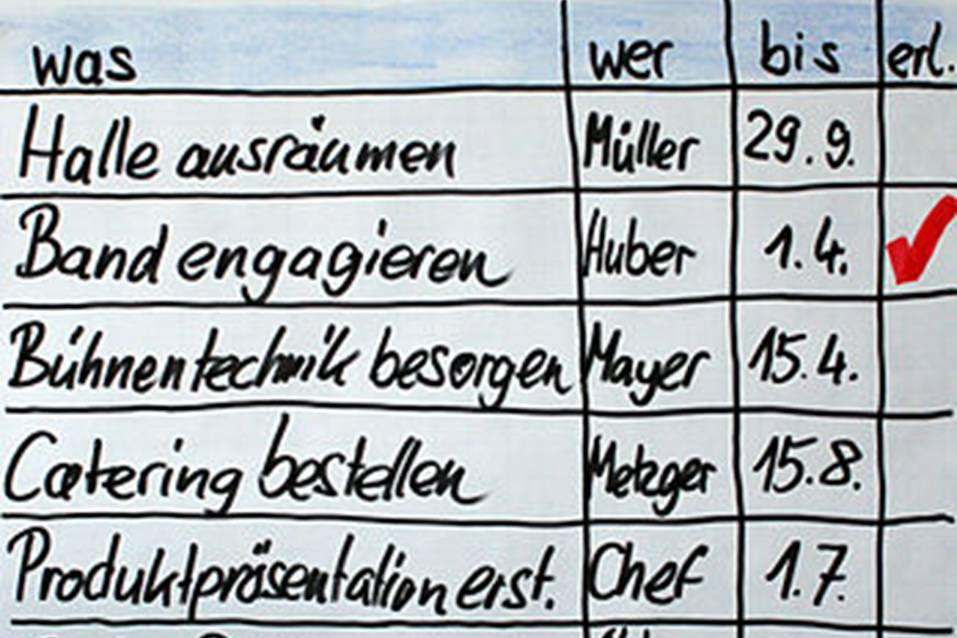 was wer bis erl.
Halle ausräumen Müller 29.9.
Band engagieren Huber 1.4. ✓
Bühnentechnik besorgen Mayer 15.4.
Catering bestellen Metzger 15.8.
Produktpräsentation erst. Chef 1.7.